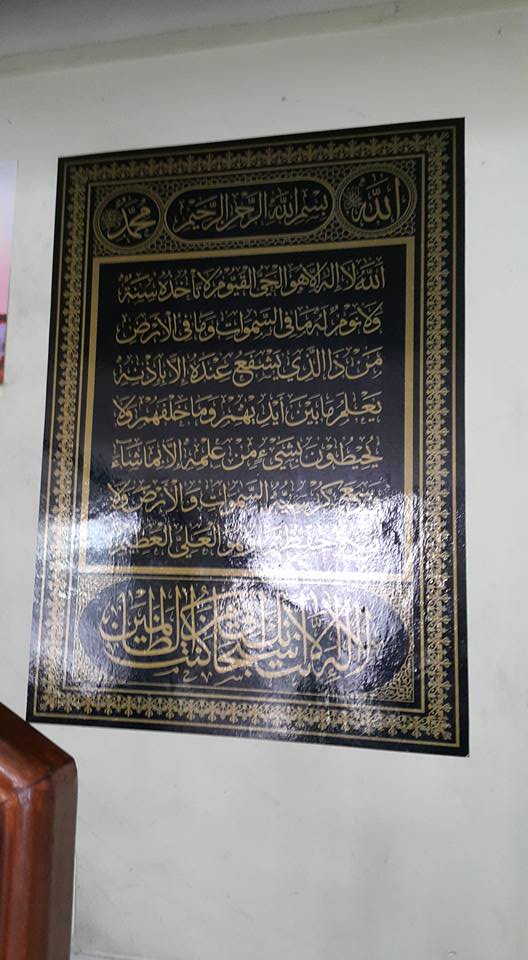 الله
بسم الله الرحمن الرحيم
محمد
الله لا اله الا هو الحي القيوم لا تأخذه سنة
ولا نوم له ما في السموات وما في الارض
من ذا الذي يشفع عنده الا باذنه
يعلم ما بين ايديهم وما خلفهم ولا
يحيطون بشيء من علمه الا بما شاء
وسع كرسيه السموات والارض ولا
حفظهما وهو العلي العظيم
لا اله الا انت سبحانك اني كنت من الظالمين